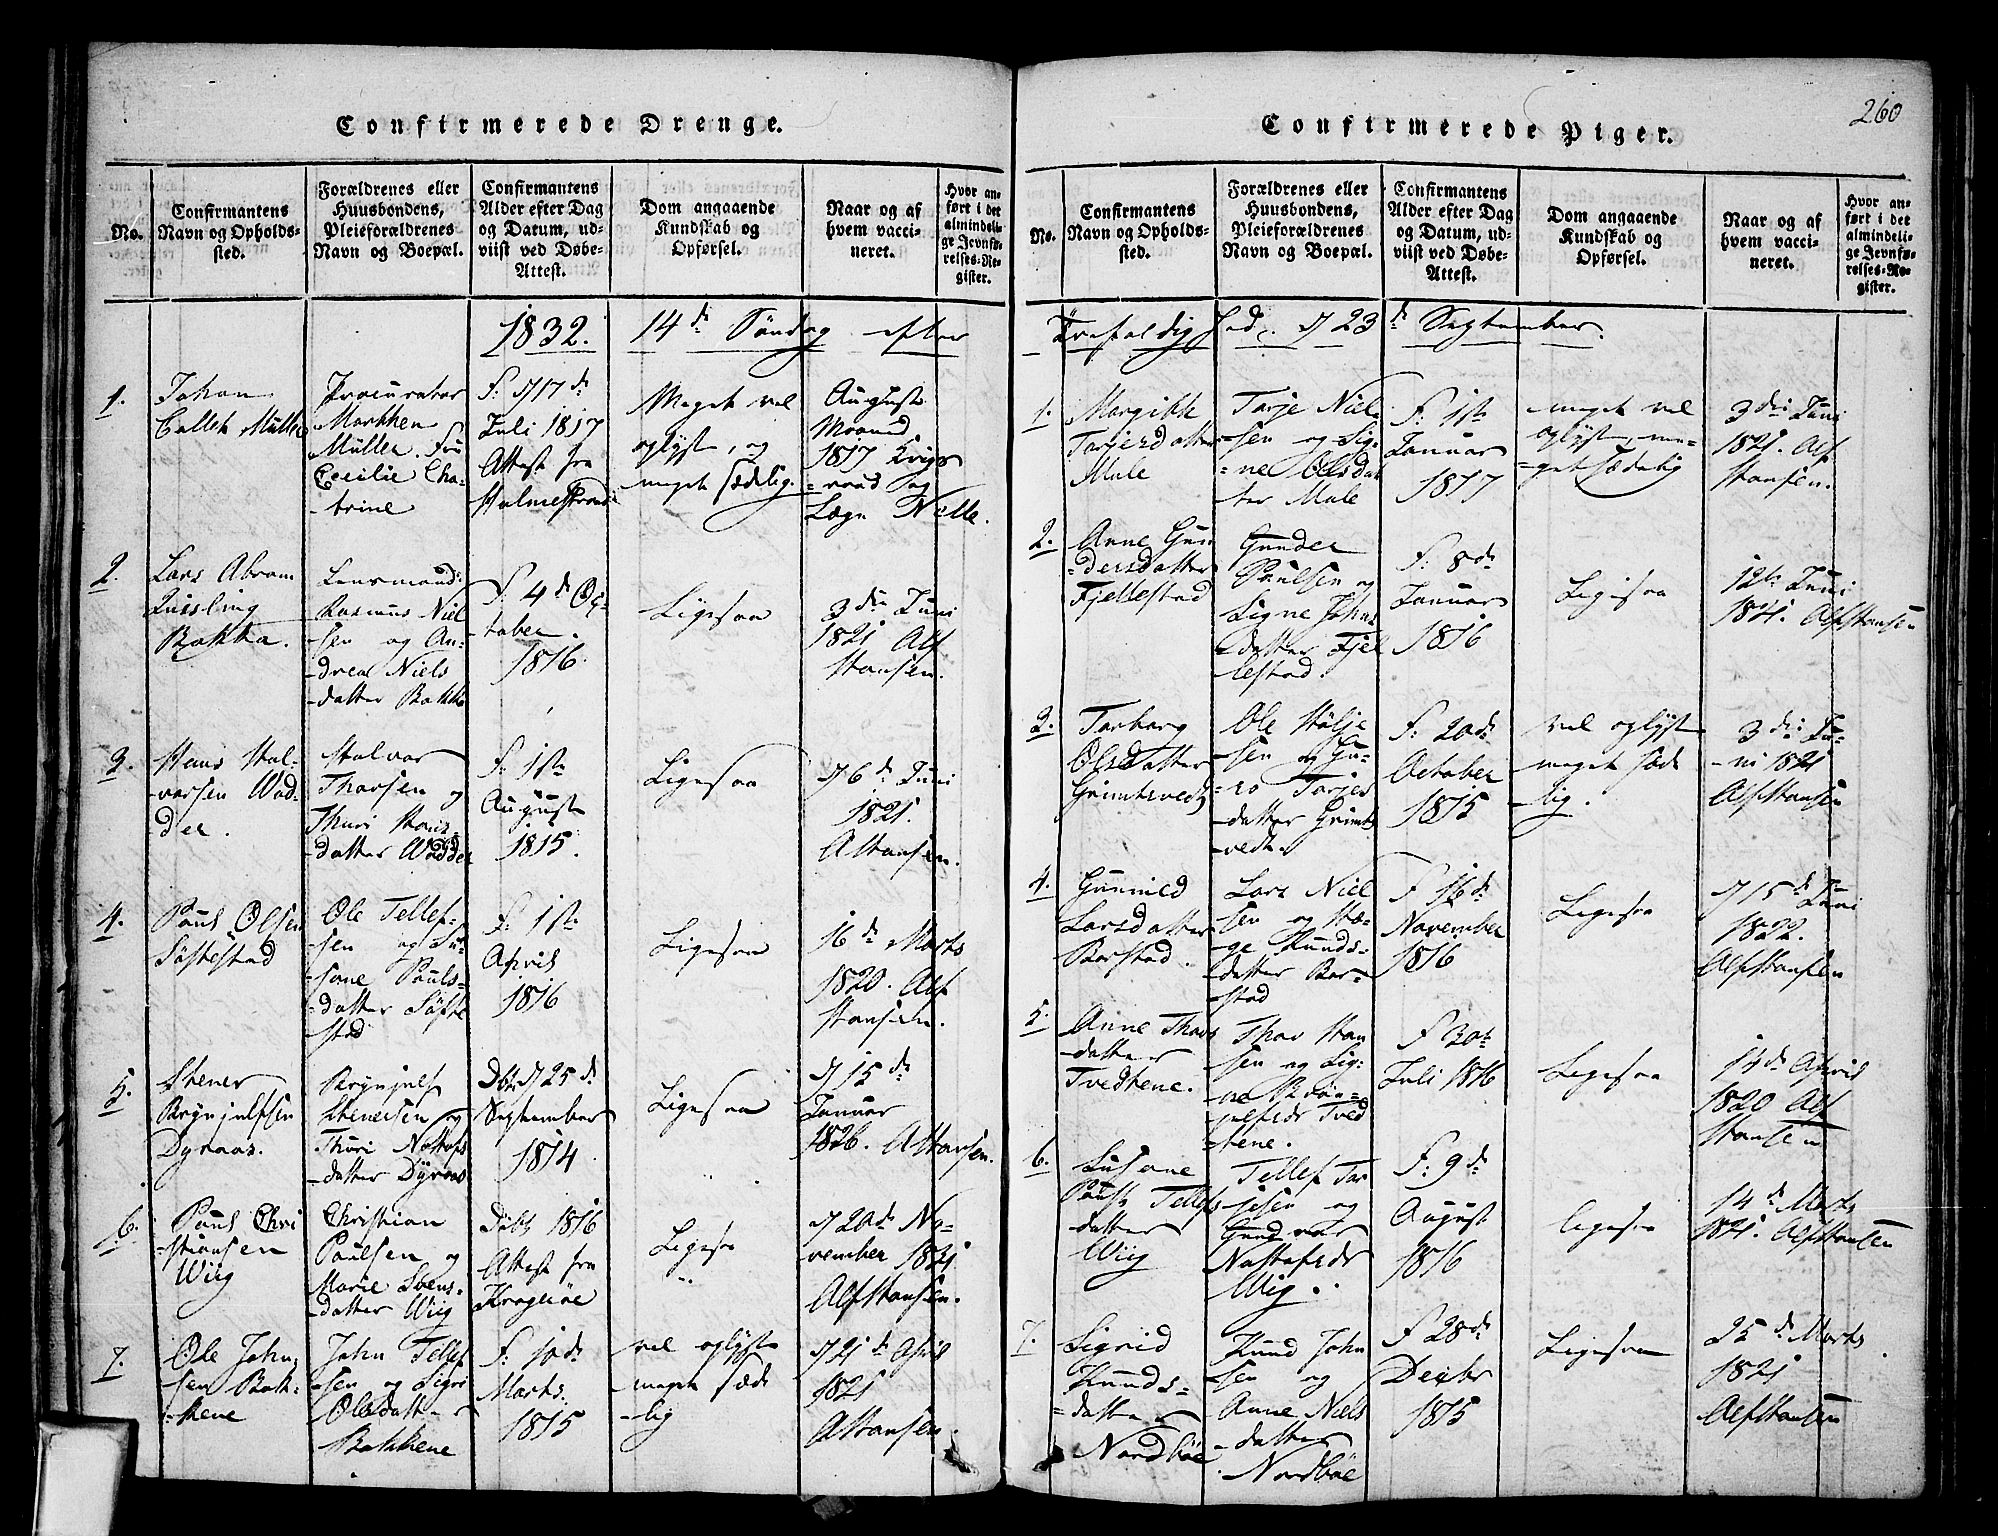 260
Confirmerede Drenge.
No.
Confirmantens
Navn og Opholds-
sted.
Forældrenes eller
Huusbondens,
Pleieforældrenes
Navn og Boepæl.
Confirmantens
Alder efter Dag
og Datum, ud-
viist ved Døbe-
Attest.
Dom angaaende
Kundskab og
Opførsel.
Naar og af
hvem vacci-
neret.
Hvor an-
ført i det
almindeli-
ge Jevnfø-
relses-Re-
gister.
1832. 14de Søndag efter
1.
Johan
Müller
Procurator
Müller. Fru
Cecilie Cha-
-trine
F: d 17de
Juli 1817
Attest fra
Holmestrand
Meget vel
oplyst, og
meget sædelig.
August
Maaned
1817
Læge
2.
Lars Abram
Quisling
Bakka.
Lensmand
Rasmus Niel
-sen og An-
-drea Niels
-datter Bakka
F: 4de Oc-
-tober
1816.
Ligesaa
3die Juni
1821 Alf
Hansen.
3.
Hans Hal-
-vorsen
Halvor
Thorsen og
Thuri Hans-
-datter
F: 1ste
August
1815.
Ligesaa
d 6de Juni
1821.
AHansen.
4.
Povel Olsen
Söftestad
Ole Tellef-
-sen og Su-
-sane Pouls-
-datter Söfte
-stad
F: 1ste
April
1816
Ligesaa
16de Marts
1820. Alf
Hansen.
5.
Stener
Brynjulfsen
Dyraas.
Brynjulf
Stenersen og
Thuri
-datter Dyraas
Döbt d 25de
September
1814
Ligesaa
d 15de
Januar
1826. AHansen.
6.
Poul Chri
-stiansen
Wiig
Christian
Poulsen og
Marie Svens-
-datter Wiig
Döbt 1816
Attest fra
Krageröe
Ligesaa
d 20de No-
-vember 1831
AlfHansen.
7.
Ole John-
-sen Bak-
-kene
John Tellef
-sen og Sigri
Olsdatter
Bakkene
F: 10de
Marts
1815
vel oplyst
meget sæde
-lig
d 21de April
1821
AHansen.
Confirmerede Piger.
No.
Confirmantens
Navn og Opholds-
sted.
Forældrenes eller
Huusbondens,
Pleieforældrenes
Navn og Boepæl.
Confirmantens
Alder efter Dag
og Datum, ud-
viist ved Døbe-
Attest.
Dom angaaende
Kundskab og
Opførsel.
Naar og af
hvem vacci-
neret.
Hvor an-
ført i det
almindeli-
ge Jevnfø-
relses-Re-
gister.
Trefoldighed. d 23de September.
1.
Margithe
Tarjesdatter
Mule
Tarje Niel
-sen og Sig-
-ne Olsdat
ter Mule
F: 1ste
Januar
1817
meget vel
oplyst, me-
-get sædelig
3die Juni
1821. Alf
Hansen.
2.
Anne Gun
-dersdatter
Fjellestad
Gunder
Poulsen og
Signe Johns
-datter Fjel
lestad.
F: 8de
Januar
1816
Ligesaa
12te Juni
1821. AlfHansen
3.
Torborg
Olsdatter
Grimtsvedt
Ole Hölje
-sen og Gu-
-ro Tarjes
-datter Grimts
-vedt.
F: 20de
October
1815
vel oplyst
meget sæde
-lig.
3die Ju-
-ni 1821
AlfHansen
4.
Gunnild
Larsdatter
Borstad.
Lars Niel
-sen og Hæ-
-ge Knuds-
-datter Bor-
-stad
F 16de
November
1816
Ligesaa
d 15de Juni
1822.
AlfHansen
5.
Anne Thors
-datter
Tvedtene.
Thor Han
-sen og Sig-
-ne
Tved
-tene.
F 30te
Juli 1816
Ligesaa
14de April
1820 Alf
Hansen
6.
Susane
Tellefs
-datter
Wiig
Tellef Tar
-jesen og
Wiig.
F: 9de
August
1816
ligesaa
14de Marts
1821. AlfHansen
7.
Sigrid
Knuds-
-datter
Nordböe
Knud John
-sen og
Anne Niels
-datter
Nordböe
F 28de
Decbr
1815
Ligesaa
25de Marts
1821
AlfHansen